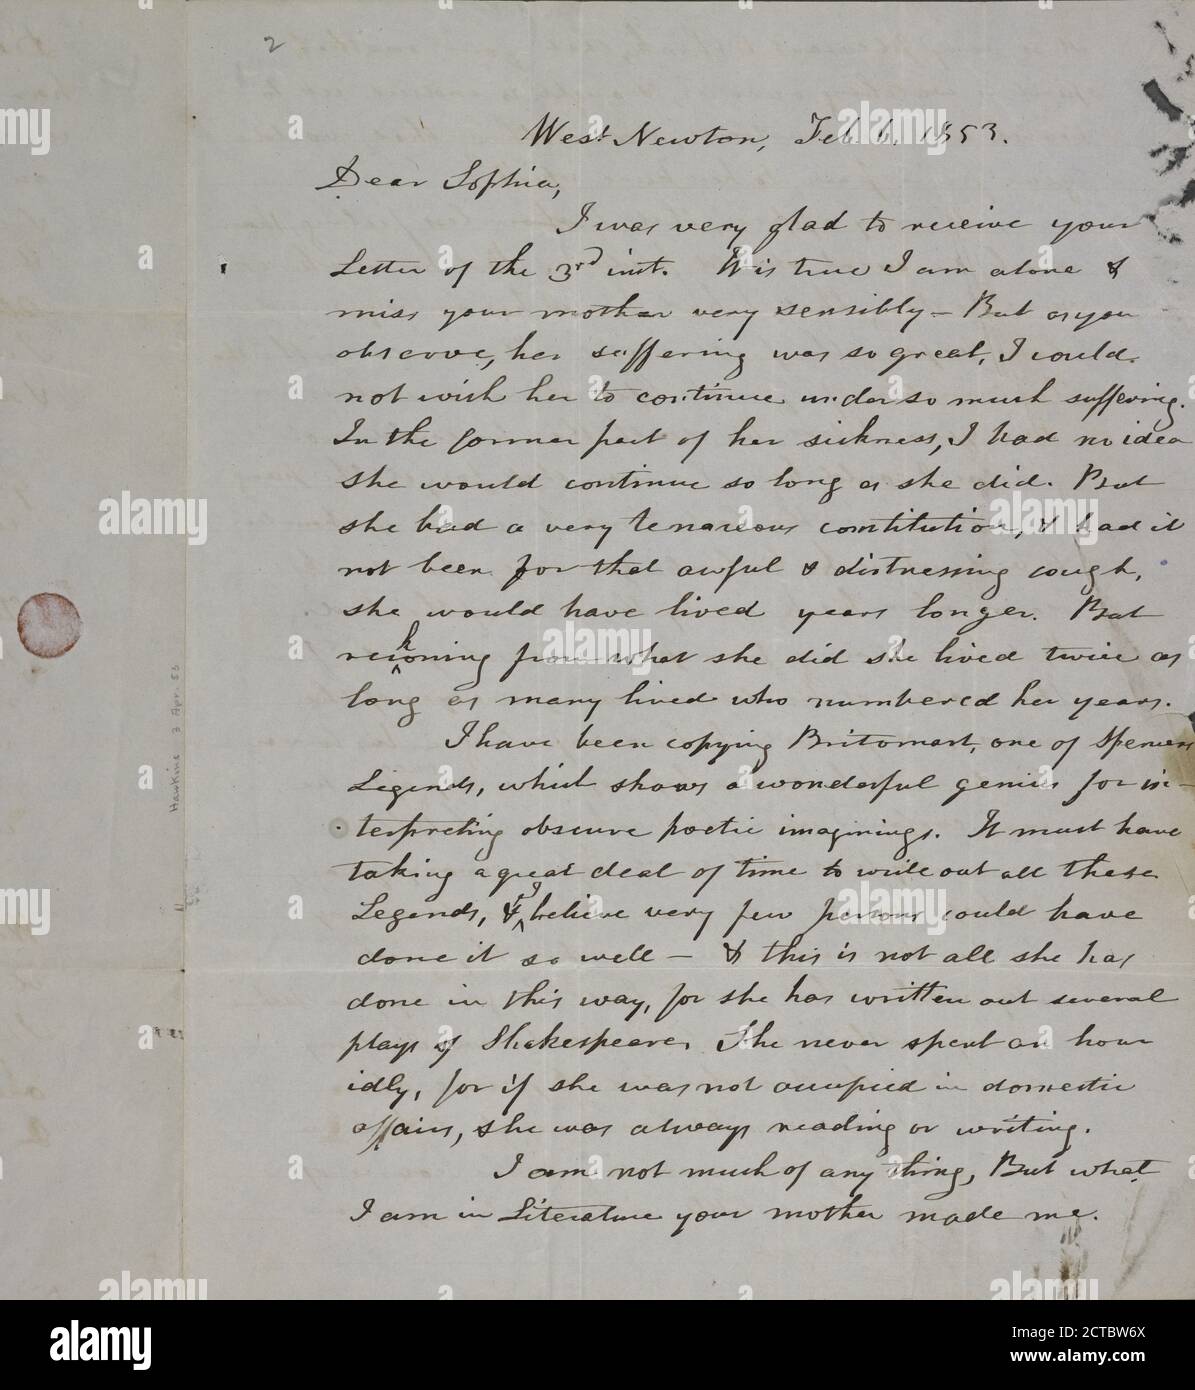 2
West Newton, Feb 6. 1853.
Dear Sophia,
I was very glad to receive your
Letter of the 3rd inst. It is true I am alone &
miss your mother very sensibly – But as you
observe, her suffering was so great, I could
not wish her to continue under so much suffering.
In the former part of her sickness, I had no idea
she would continue so long as she did. But
she had a very tenareous constitution, & had it
not been for that awful & distressing cough,
she would have lived years longer. But
reckoning from what she did she lived twice as
long as many lived who numbered her years.
I have been copying Britomart, one of Spencers
Legends, which shows a wonderful genius for in-
terpreting obscure poetic imaginings. It must have
taking a great deal of time to write out all these
Legends, & I believe very few persons could have
done it so well – & this is not all she has
done in this way, for she has written out several
plays of Shakespeare. She never spent an hour
idly, for if she was not occupied in domestic
affairs, she was always reading or writing.
I am not much of any thing, But what
I am in Literature your mother made me.
Hawkins 3 Apr. 53
alamy
Image ID: 2CTBW6X
www.alamy.com